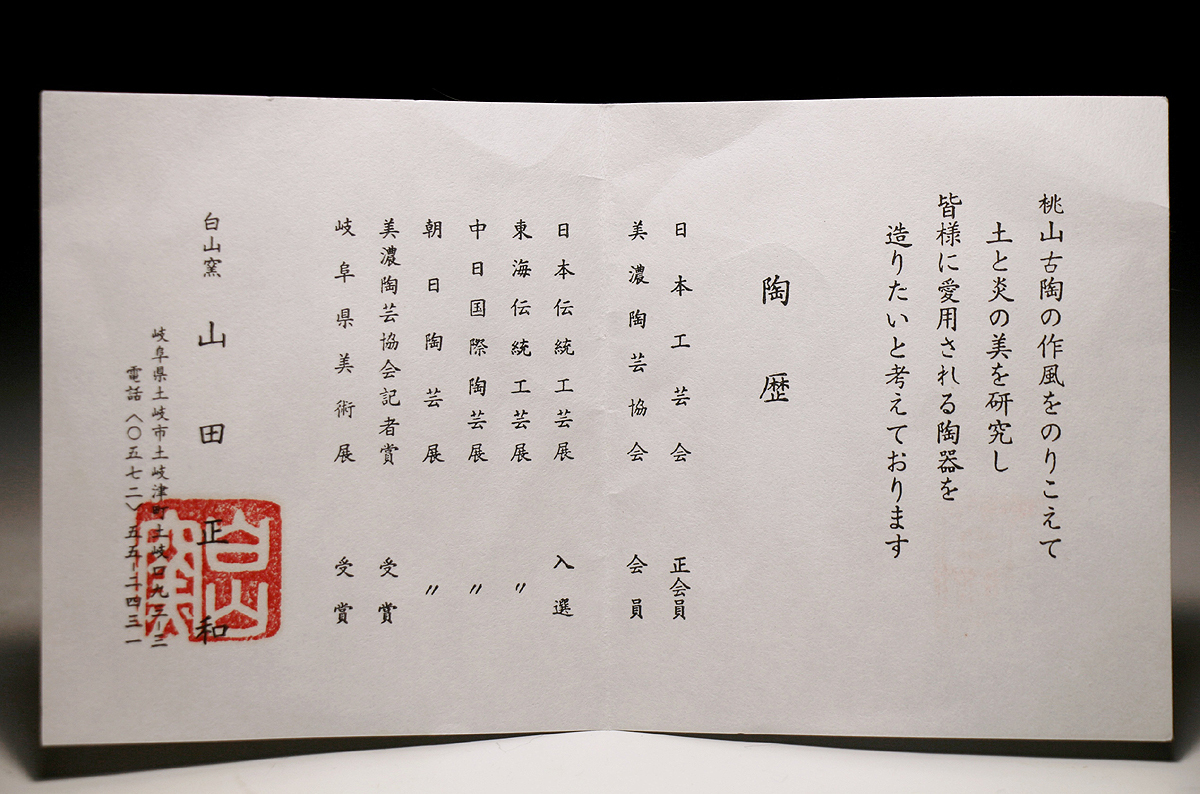 桃山古陶の作風をのりこえて
土と炎の美を研究し
皆様に愛用される陶器を
造りたいと考えております
陶歴
日本工芸会 正会員
美濃陶芸協会 会員
日本伝統工芸展 入選
東海伝統工芸展 〃
中日国際陶芸展 〃
朝日陶芸展 〃
美濃陶芸協会記者賞 受賞
岐阜県美術展 受賞
白山窯 山田正和
岐阜県土岐市土岐津町土岐口九三ー三
電話〈〇五七二〉五五ー二四三一
白山
窯